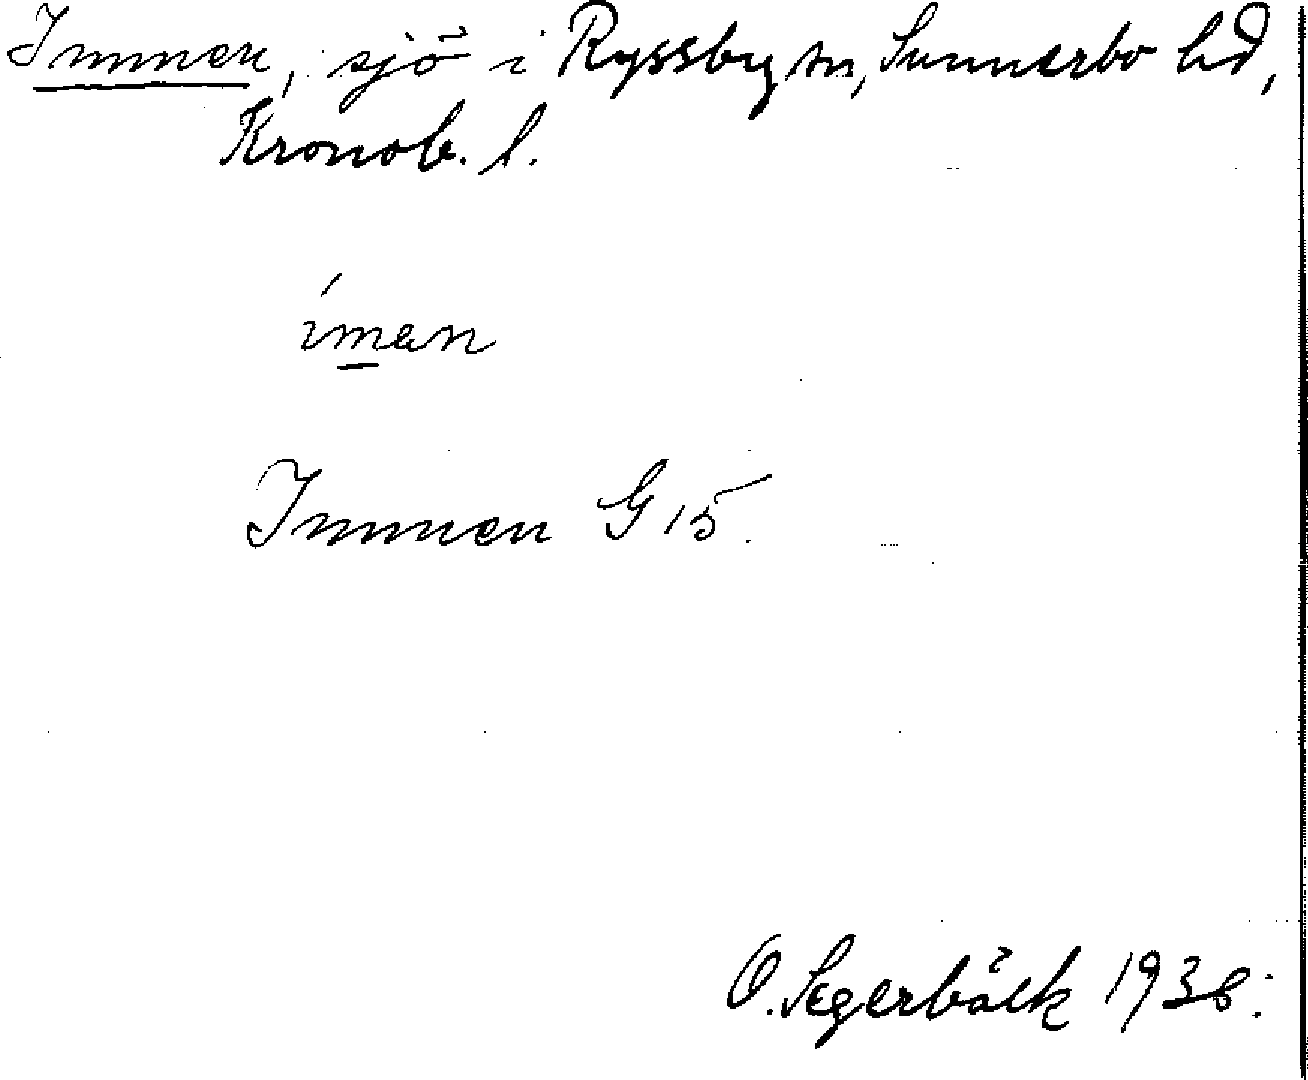 Immen, sjö i Ryssby sn, Sunnerbo hd,
Kronob. l.
íman
Immen G 15.
O. Segerbäck 1938.